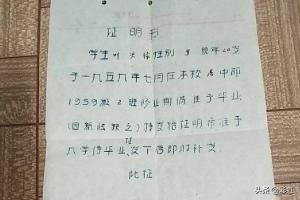 证明书
学生叶 性别 男 现年20岁
于一九五九年七月在本校高中部
1959级2班修业期满准予毕业
(因新 故 之)特发给证明书准予
入学待毕业 下届即将补发
此证
头条@